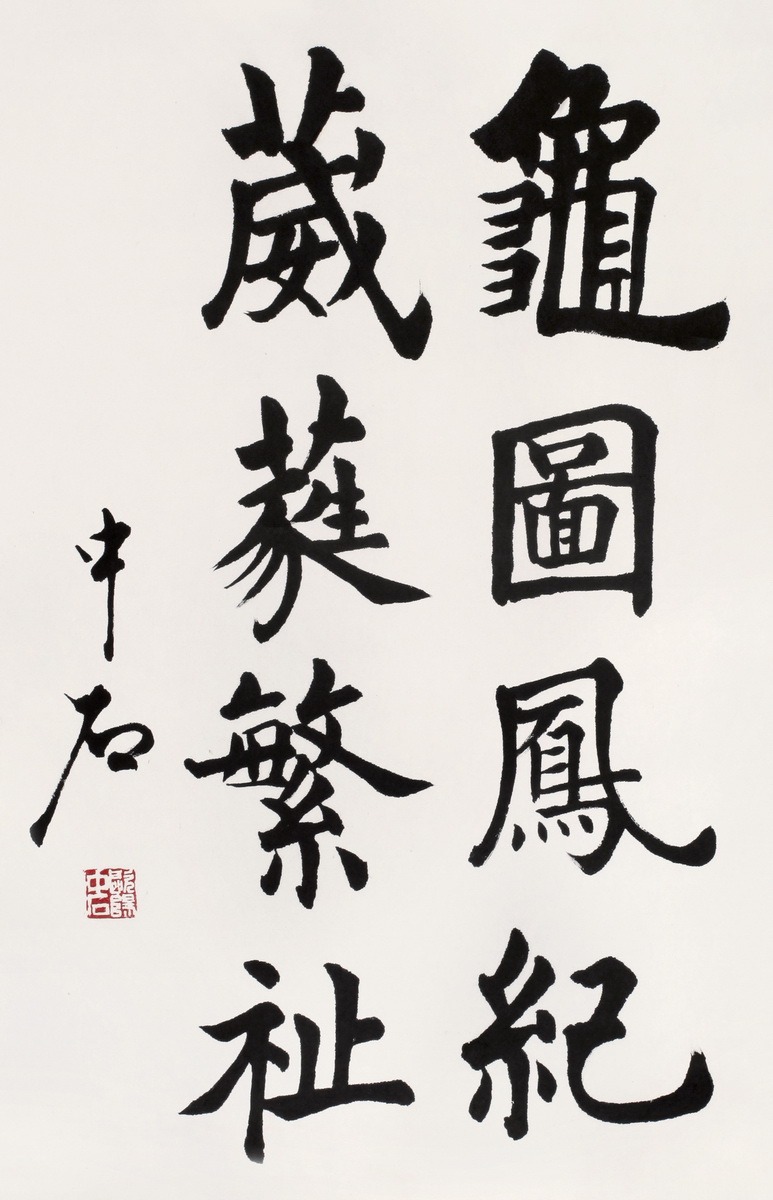 龜圖鳳紀
葳蕤繁祉
中石
歐陽中石